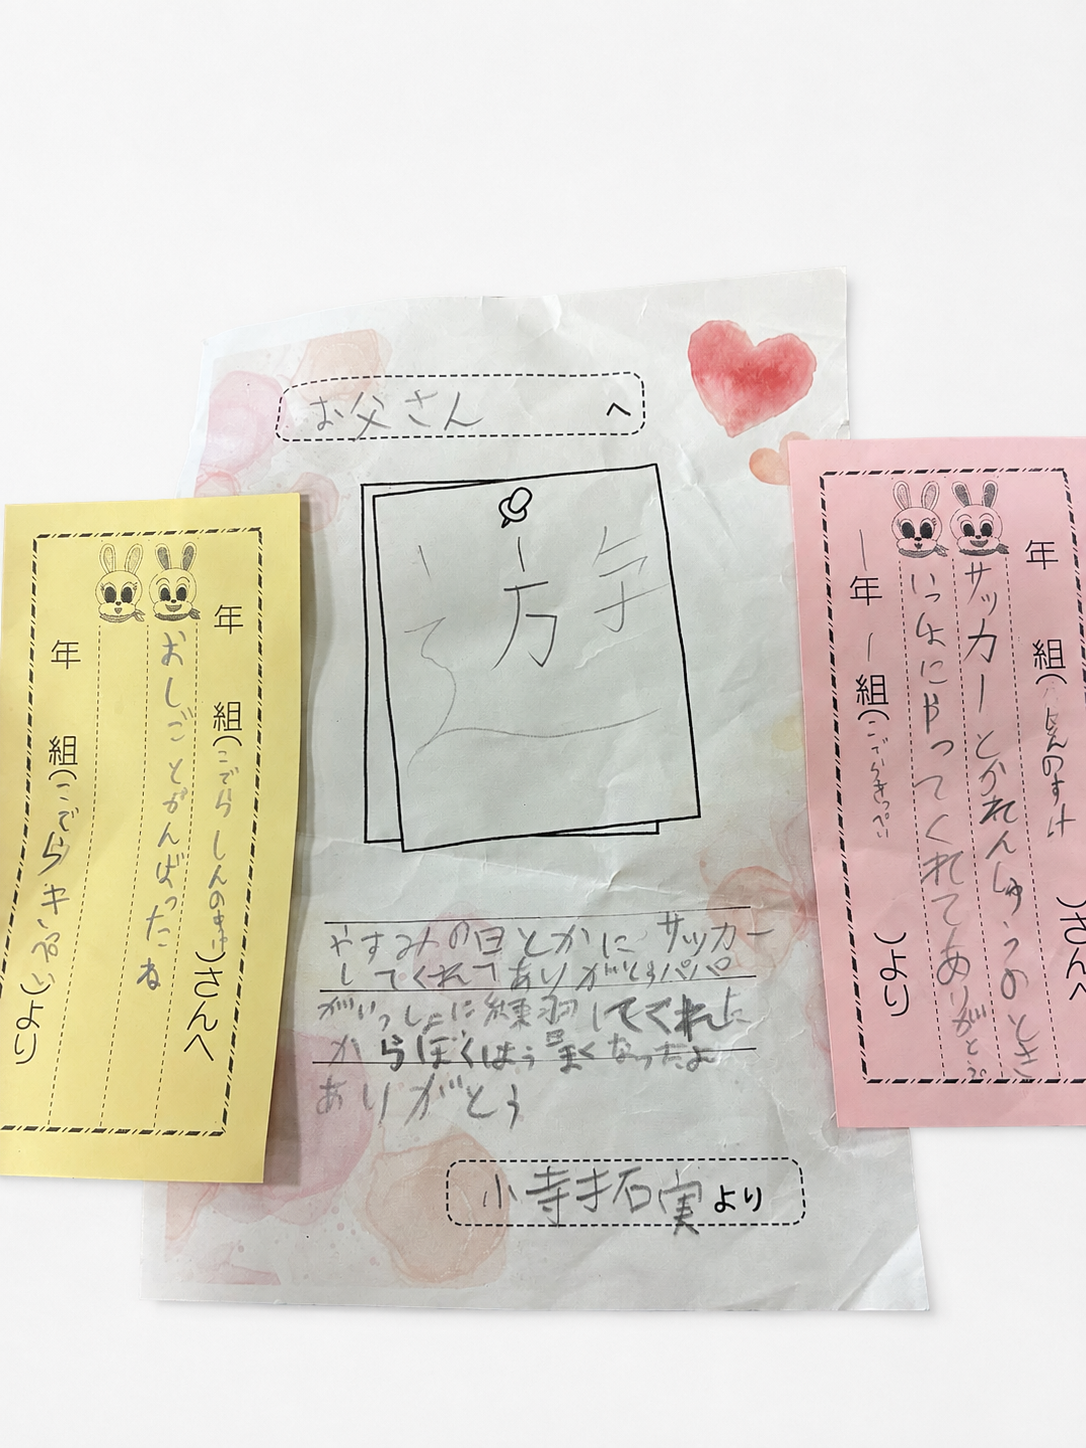 お父さん へ
やすみの日とかに サッカー
してくれてありがとうパパ
がいっしょに練習してくれた
からぼくはう、まくなったよ
ありがとう
小寺拓実より
年 組(こでらしんのすけ)さんへ
おしごとがんばったね
年 組(こでらきっぺい)より
年 組(しんのすけ)さんへ
サッカーとかれんしゅうのとき
いっしょにやってくれてありがとう。
一年一組(こでらきっぺい)より